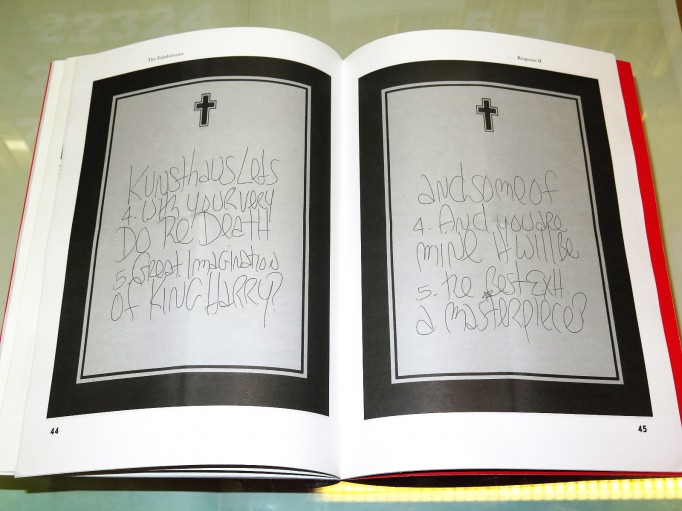 Response II
Kunsthaus Lets
4. with your very
Do Re Death
5. Great Imagination
of King Harry?
44
and some of
4. And you are
mine it will be
5. The Best Exh.
a masterpiece?
45